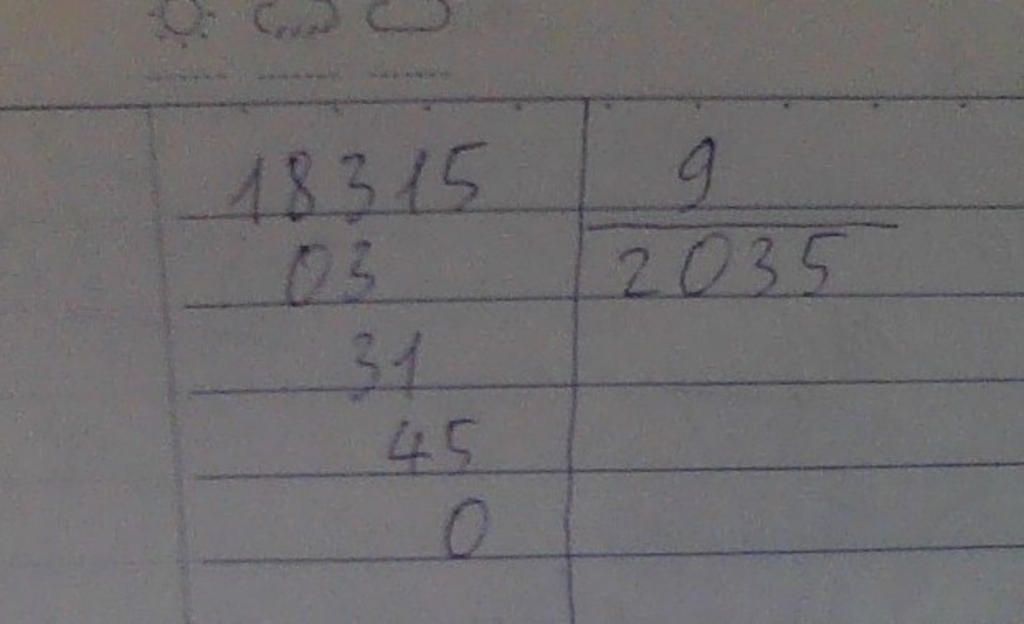 18315 9
03 2035
31
45
0